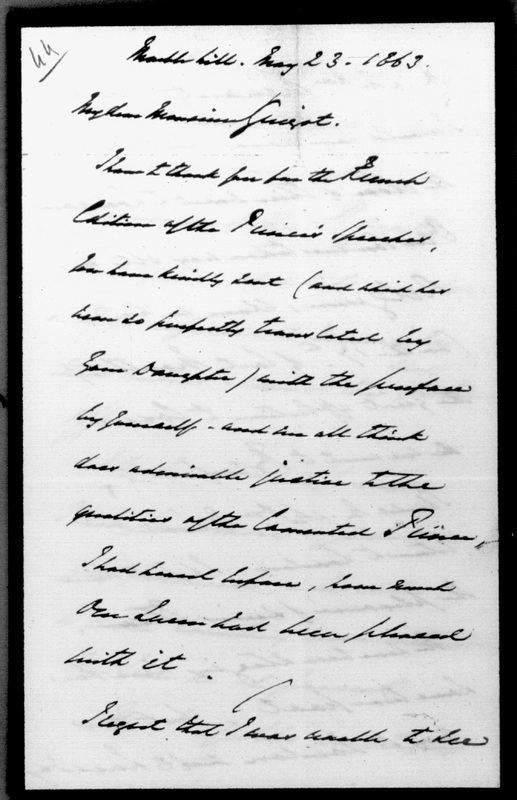 44
Marble hill. May 23 - 1863.
My dear Monsieur Guizot.
I have to thank you for the French
Edition of the Prince's Speeches,
You have kindly sent (and which has
been so perfectly translated by
Your Daughter) with the preface
by yourself - and we all think
does admirable justice to the
qualities of the lamented Prince,
I had heard before, how much
Our Queen had been pleased
with it.
I regret that I was unable to see